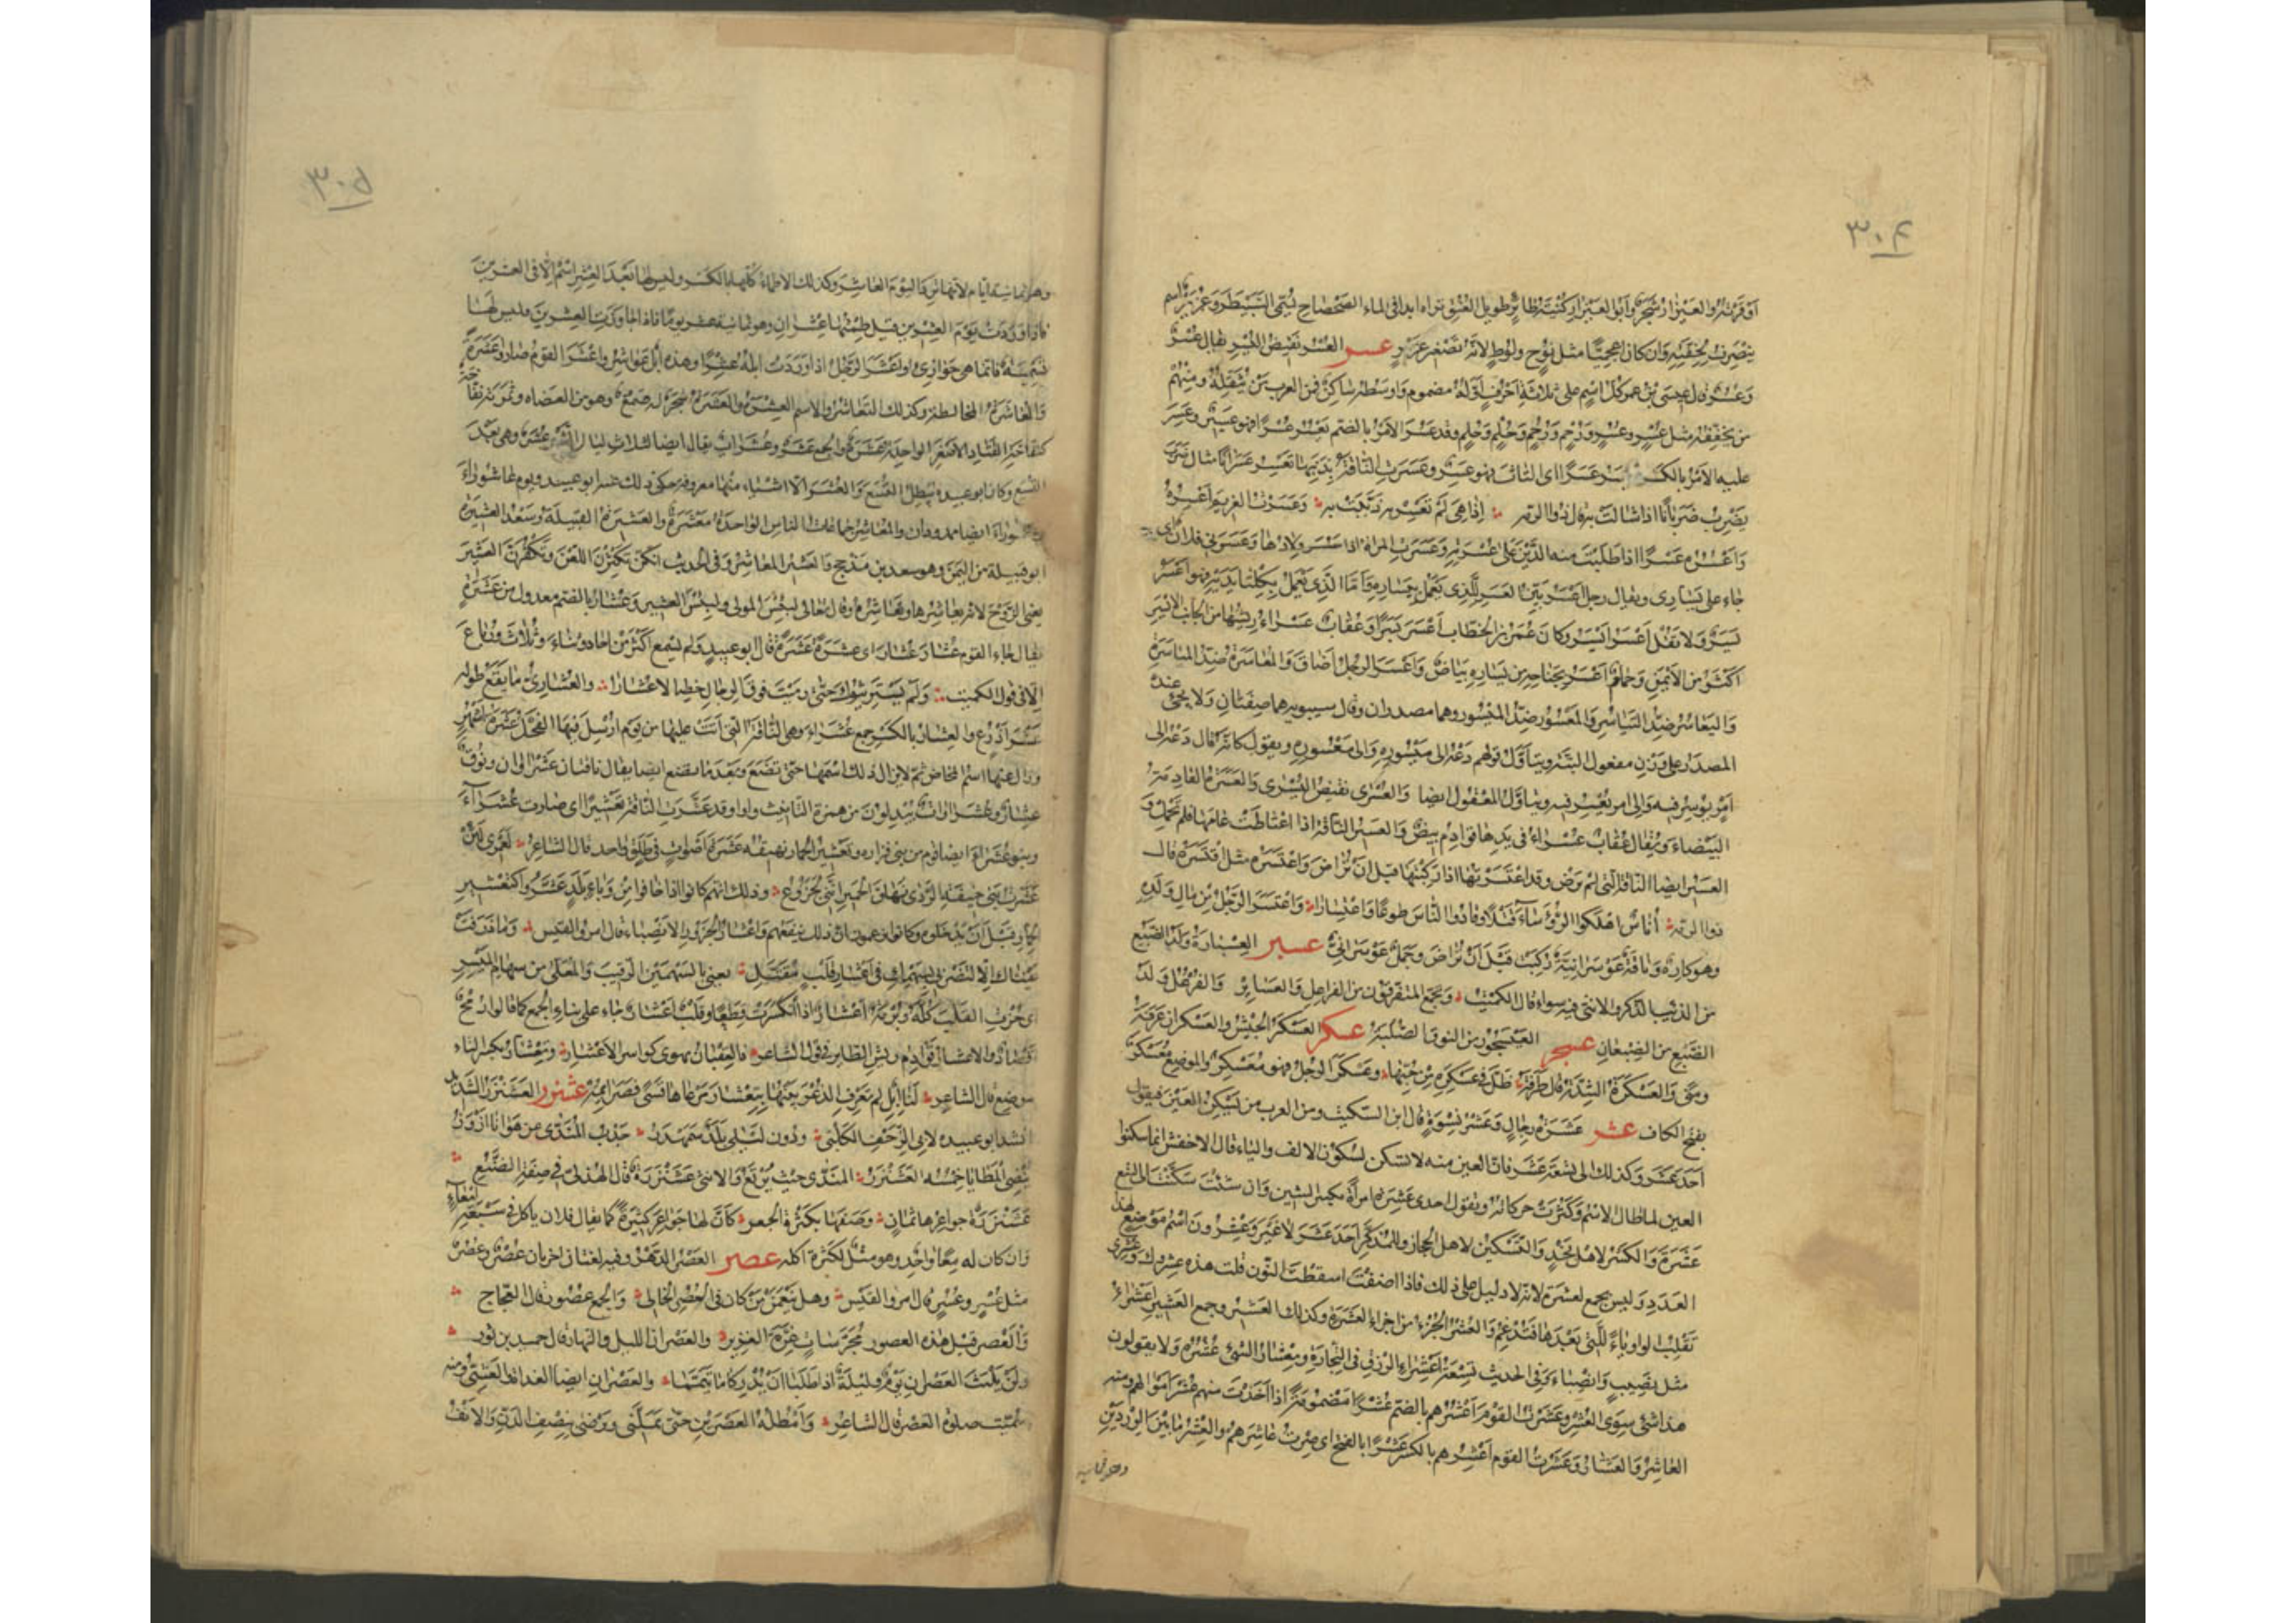 ٣٠٤
او قرشت والعيزار شجر وابو العيزار كنية طائر طويل العنق تراه ابدا فى الماء الضحضاح يسمى السبيطر وعزير اسم
ينصرف لخفته وان كان اعجميا مثل نوح ولوط لانه تصغير عزر عسر العسر نقيض اليسر يقال عسر
وعسر قال عيسى بن عمر كل اسم على ثلاثة احرف اوله مضموم واوسطه ساكن فمن العرب من يثقله ومنهم
من يخففه مثل عسر وعسر ورحم ورحم وحلم وحلم وقد عسر الامر بالضم يعسر عسرا فهو عسير وعسر
عليه الامر بالكسر يعسر عسرا اى التاث فهو عسر وعسرت الناقة بذنبها تعسر عسرانا مثال ضرب
يضرب ضربانا اذا شالت به قال ذو الرمة اذا هى لم تعسر به ذنبت به وعسرت الغريم اعسره
واعسره عسرا اذا طلبت منه الدين على عسرته وعسرت المراة اذا عسر ولادها وعسرنى فلان اى
جاء على يسارى ويقال رجل اعسر بين العسر للذى يعمل بيساره واما الذى يعمل بكلتا يديه فهو اعسر
يسر ولا تقل اعسر ايسر وكان عمر بن الخطاب اعسر يسرا وعقاب عسراء ريشها من الجانب الايسر
اكثر من الايمن وحمام اعسر بجناحه من يساره بياض واعسر الرجل اضاق والمعاسرة ضد المياسرة
والتعاسر ضد التياسر والمعسور ضد الميسور وهما مصدران وقال سيبويه هما صفتان ولا يجئ عنده
المصدر على وزن مفعول البتة ويتاول قولهم دعه الى ميسوره والى معسوره ويقول كانه قال دعه الى
امر يوسر فيه والى امر يعسر فيه ويتاول المعقول ايضا والعسرى نقيض اليسرى والعسرة القادمة
البيضاء ويقال عقاب عسراء فى يدها قوادم بيض والعسير الناقة اذا اعتاطت عامها فلم تحمل و
العسير ايضا الناقة التى لم ترض وقد اعتسرتها اذا ركبتها قبل ان تراض واعتسره مثل اقتسره قال
ذو الرمة اناس اهلكوا الرؤساء قتلا وقادوا الناس طوعا واعتسارا واعتسر الرجل من مال ولده
وهو كاره وناقة عوسرانية ركبت قبل ان تراض وجمل عوسرانى عسبر العسبارة ولد الضبع
من الذئب الذكر والانثى فيه سواء قال الكميت وتجمع المتفرقون من الفراعل والعسابر والفرعل ولد
الضبع من الضبعان عسجر العيسجور من النوق الصلبة عسكر العسكر الجيش والعسكران عرفة
ومنى والعسكرة الشدة قال طرفة ظل فى عسكرة من حبها وعسكر الرجل فهو معسكر والموضع معسكر
بفتح الكاف عشر عشرة رجال وعشر نسوة قال ابن السكيت ومن العرب من يسكن العين فيقول
احد عشر وكذلك الى تسعة عشر فان العين منه لا تسكن لسكون الالف والياء قال الاخفش انما سكنوا
العين لما طال الاسم وكثرت حركاته وتقول احدى عشرة امراة بكسر الشين وان شئت سكنت الى تسع
عشرة والكسر لاهل نجد والتسكين لاهل الحجاز والمذكر احد عشر لا غير وعشرون اسم موضوع لهذا
العدد وليس بجمع لعشرة لانه لا دليل على ذلك فاذا اضفت اسقطت النون قلت هذه عشروك وعشرى
تقلب الواو ياء للتى بعدها فتدغم والعشر الجزء من اجزاء العشرة وكذلك العشير وجمع العشير اعشراء
مثل نصيب وانصباء وفى الحديث تسعة اعشراء الرزق فى التجارة ومعشار الشئ عشره ولا يقولون
هذا فى شئ سوى العشر وعشرت القوم اعشرهم بالضم عشرا مضمومة اذا اخذت منهم عشر اموالهم ومنه
العاشر والعشار وعشرت القوم اعشرهم بالكسر عشرا بالفتح اى صرت عاشرهم والعشر ما بين الوردين
وهو ثمانية
٣٠٥
وهو ثمانية ايام لانها ترد اليوم العاشر وكذلك الاظماء كلها بالكسر وليس لها بعد العشر اسم الا فى العشرين
فاذا وردت يوم العشرين قيل ظمئها عشران وهو ثمانية عشر يوما فاذا جاوزت العشرين فليس لها
تسمية فانما هى جوازئ واعشر الرجل اذا وردت ابله عشرا وهذه ابل عواشر واعشر القوم صاروا عشرة
والمعاشرة المخالطة وكذلك التعاشر والاسم العشرة والعشرة شجرة له صمغ وهو من العضاه وثمرته نفاخة
كنفاخة القتاد الاصفر الواحدة عشرة والجمع عشر وعشرات يقال ايضا لثلاث ليال عشر وهى بعد
التسع وكان ابو عبيدة يبطل التسع والعشر الا اشياء منها معروفة حكى ذلك عنه ابو عبيد ويوم عاشوراء
ايضا ممدودان والمعاشر جماعات الناس الواحدة معشر والعشيرة القبيلة وسعد العشيرة
ابو قبيلة من اليمن وهو سعد بن مذحج والعشير المعاشر وفى الحديث انكن تكثرن اللعن وتكفرن العشير
يعنى الزوج لانه يعاشرها وتعاشره وقال تعالى لبئس المولى ولبئس العشير وعشار بالضم معدول من عشرة
يقال جاء القوم عشار عشار اى عشرة عشرة قال ابو عبيد ولم يسمع اكثر من احاد وثناء وثلاث ورباع
الا فى قول الكميت ولم يستريثوك حتى رميت فوق الرجال خصالا عشارا والعشارى ما يقع طوله
عشر اذرع والعشار بالكسر جمع عشراء وهى الناقة التى اتت عليها من يوم ارسل فيها الفحل عشرة اشهر
وزال عنها اسم المخاض ثم لا يزال ذلك اسمها حتى تضع وبعد ما تضع ايضا يقال ناقتان عشراوان ونوق
عشار وعشراوات يبدلون من همزة التانيث واوا وقد عشرت الناقة تعشيرا اى صارت عشراء
وبنو عشراء ايضا قوم من بنى فزارة وتعشير الحمار نهيقه عشرة اصوات فى طلق واحد قال الشاعر لعمرى لئن
عشرت من خيفة الردى نهاق الحمير اننى لجزوع وذلك انهم كانوا اذا خافوا من وباء بلد عشروا كتعشير
الحمار قبل ان يدخلوه وكانوا يزعمون ان ذلك ينفعهم واعشار الجزور الانصباء قال امرؤ القيس وما ذرفت
عيناك الا لتضربى بسهميك فى اعشار قلب مقتل يعنى بالسهمين الرقيب والمعلى من سهام الميسر
اى حزت القلب كله وبرمة اعشار اذا انكسرت قطعا وقلب اعشار جاء على بناء الجمع كما قالوا رمح
اقصاد والاعشار قوادم ريش الطائر فى قول الشاعر فالعقبان تهوى كواسر الاعشار وتعشار بكسر التاء
موضع قال الشاعر لنا ابل لم تعرف الذعر بينها بتعشار مرعاها قسا فصرائمه عشنزر العشنزر الشديد
انشد ابو عبيدة لابى الزحف الكلبنى ودون ليلى بلد سمهدر جدب المندى عن هوانا ازور
ينضى المطايا خمسه العشنزر المندى حيث يرتع والانثى عشنزرة قال الهذلى فى صفة الضبع
عشنزرة جواعرها ثمان وصفها بكثرة الجعر كان لها جواعر كثيرة كما يقال فلان ياكل فى سبعة امعاء
وان كان له معا واحد وهو مثل لكثرة اكله عصر العصر الدهر وفيه لغتان اخريان عصر وعصر
مثل عسر وعسر قال امرؤ القيس وهل ينعمن من كان فى العصر الخالى والجمع عصور قال العجاج
والعصر قبل هذه العصور مجرسات غرة الغرير والعصران الليل والنهار قال حميد بن ثور
ولن يلبث العصران يوم وليلة اذا طلبا ان يدركا ما تيمما والعصران ايضا الغداة والعشى ومنه
سميت صلوة العصر قال الشاعر وامطله العصرين حتى يملنى ويرضى بنصف الدين والانف